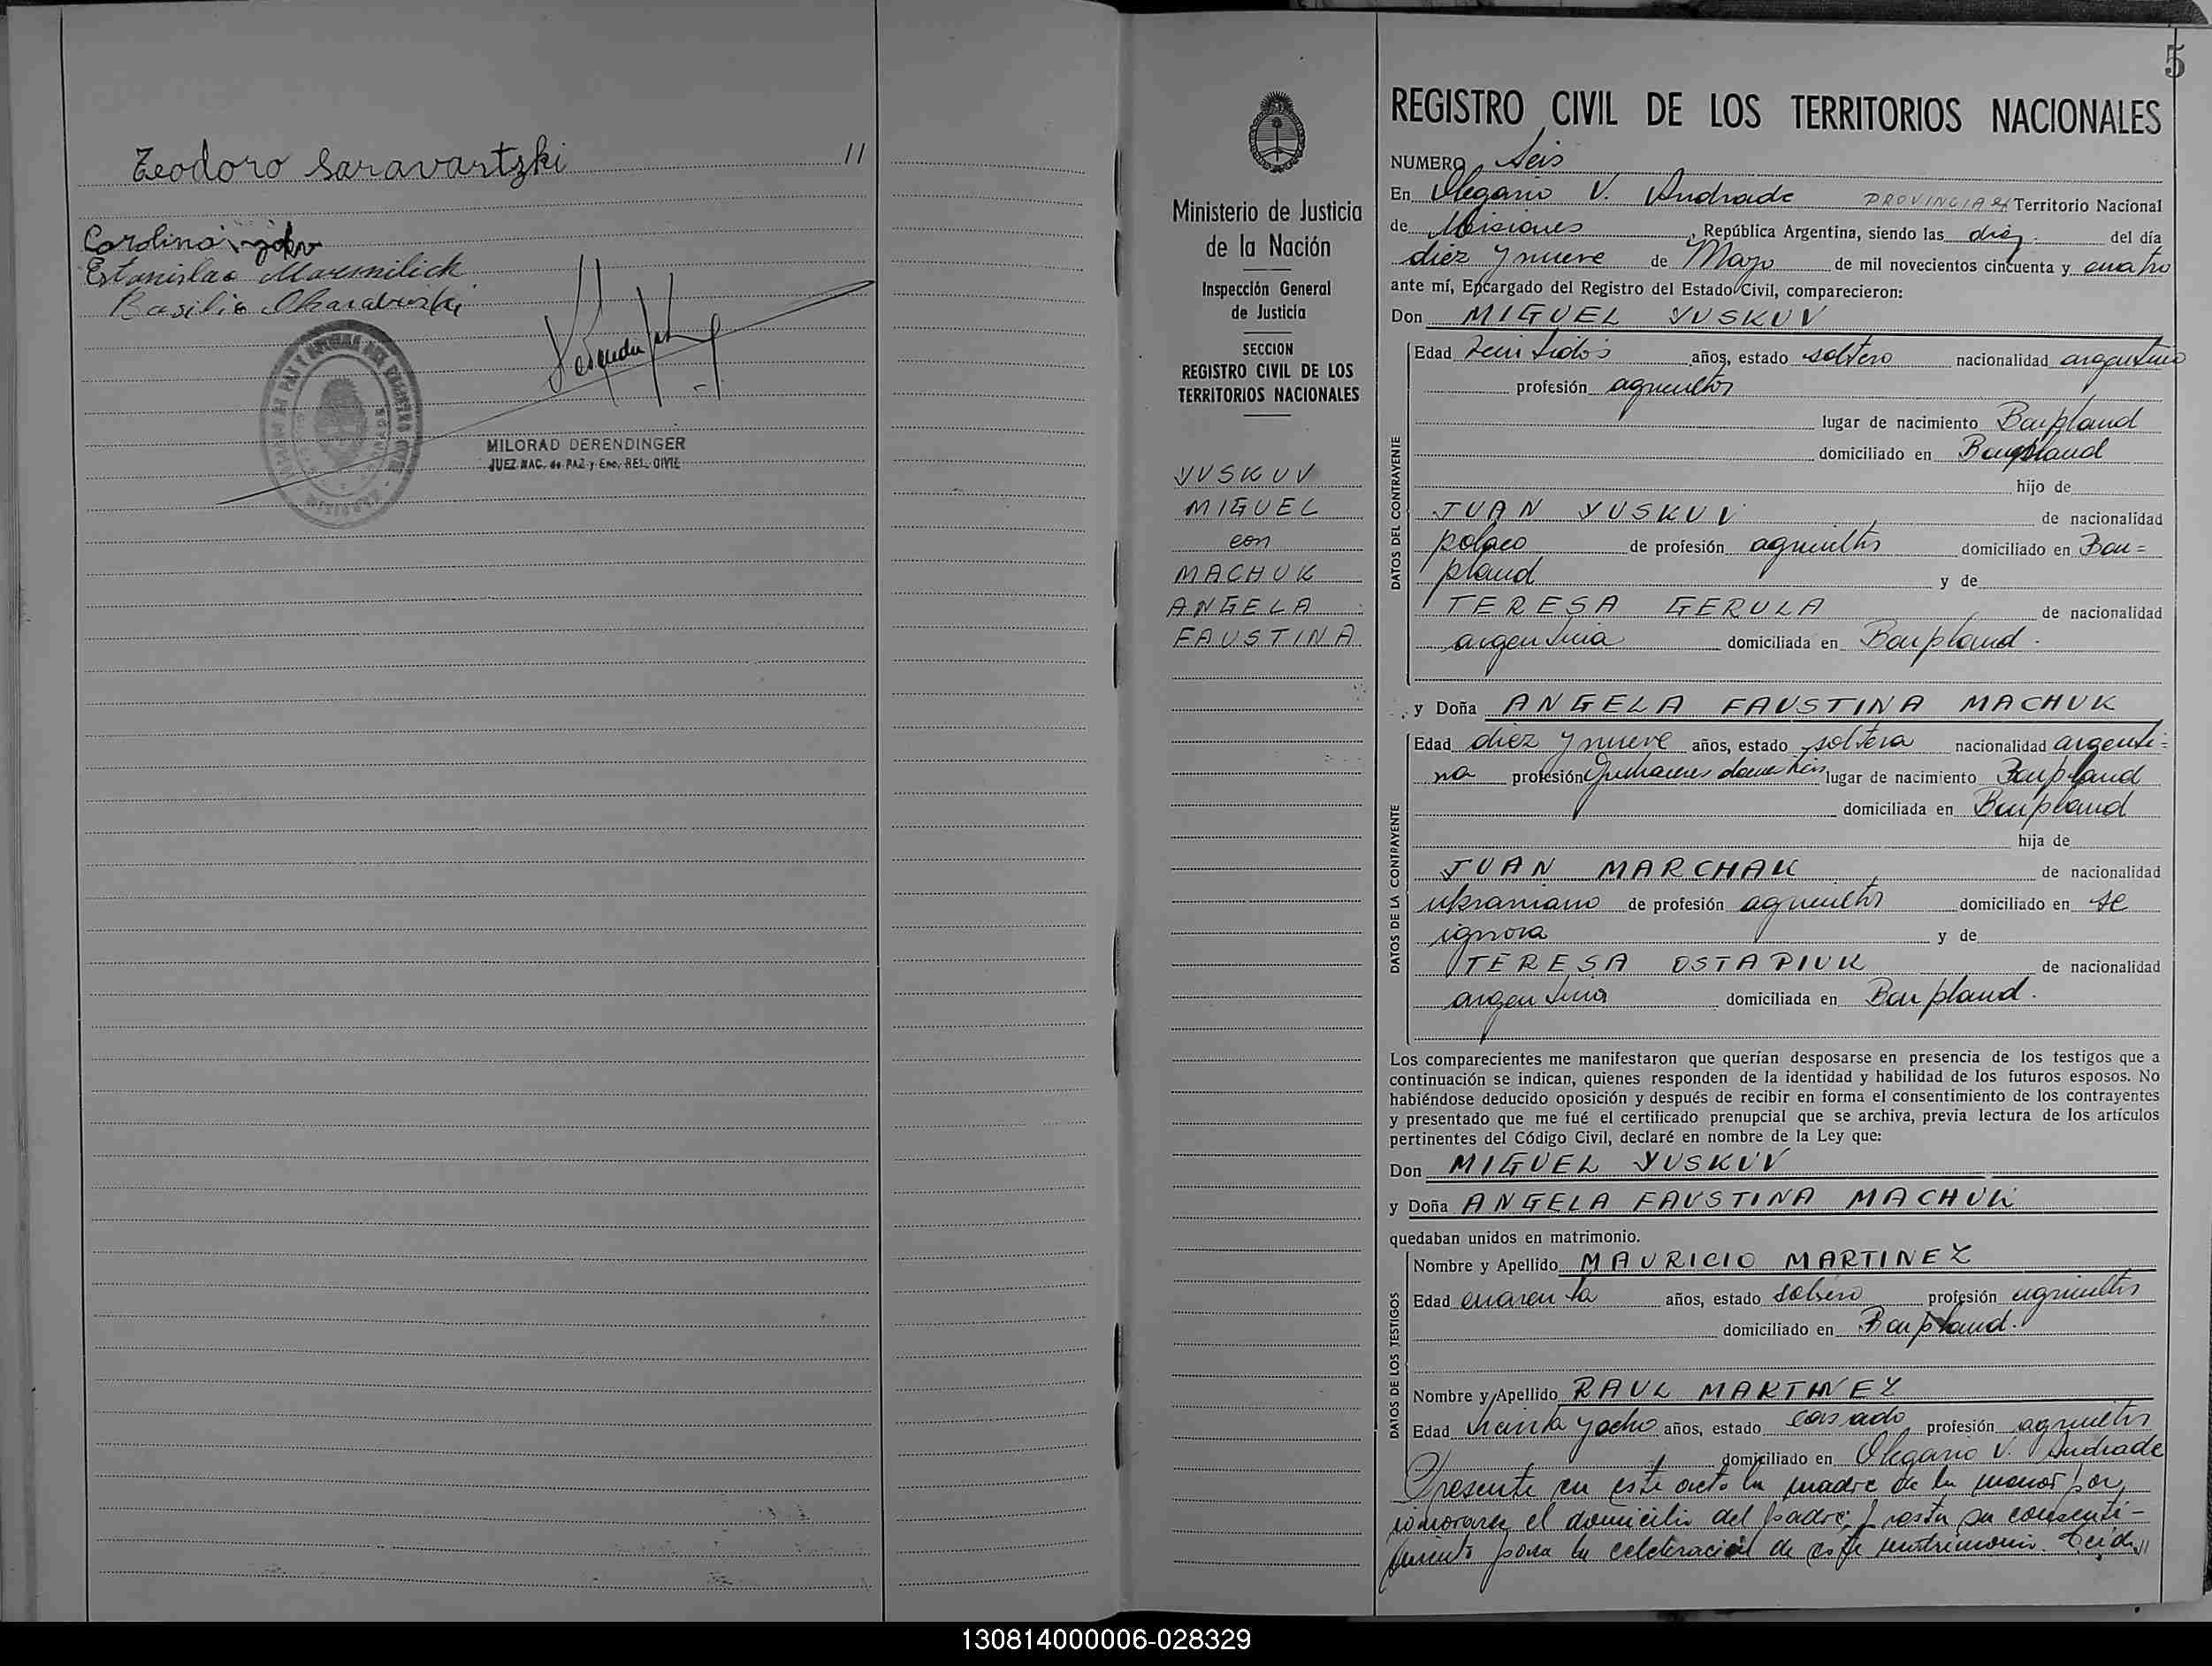 Teodoro Saravartzki //
Carolina
Estanislao Marenilich
Basilio
MILORAD DERENDINGER
JUEZ NAC. de PAZ y Enc. REG. CIVIL
5
Ministerio de Justicia
de la Nación
Inspección General
de Justicia
SECCION
REGISTRO CIVIL DE LOS
TERRITORIOS NACIONALES
YUSKUV
MIGUEL
con
MACHUK
ANGELA
FAUSTINA
REGISTRO CIVIL DE LOS TERRITORIOS NACIONALES
NUMERO Seis
En Olegario V. Andrade PROVINCIA Territorio Nacional
de Misiones, República Argentina, siendo las diez del día
diez y nueve de Mayo de mil novecientos cincuenta y cuatro
ante mí, Encargado del Registro del Estado Civil, comparecieron:
Don MIGUEL YUSKUV
DATOS DEL CONTRAYENTE
Edad veintidós años, estado soltero nacionalidad argentino
profesión agricultor
lugar de nacimiento Bonpland
domiciliado en Bonpland
hijo de
JUAN YUSKUV de nacionalidad
polaco de profesión agricultor domiciliado en Bon=
pland y de
TERESA GERULA de nacionalidad
argentina domiciliada en Bonpland.
y Doña ANGELA FAUSTINA MACHUK
DATOS DE LA CONTRAYENTE
Edad diez y nueve años, estado soltera nacionalidad argenti=
na profesión Quehaceres domesticos lugar de nacimiento Bonpland
domiciliada en Bonpland
hija de
JUAN MARCHAK de nacionalidad
ukraniano de profesión agricultor domiciliado en se
ignora y de
TERESA OSTAPIUK de nacionalidad
argentina domiciliada en Bonpland.
Los comparecientes me manifestaron que querían desposarse en presencia de los testigos que a
continuación se indican, quienes responden de la identidad y habilidad de los futuros esposos. No
habiéndose deducido oposición y después de recibir en forma el consentimiento de los contrayentes
y presentado que me fué el certificado prenupcial que se archiva, previa lectura de los artículos
pertinentes del Código Civil, declaré en nombre de la Ley que:
Don MIGUEL YUSKUV
y Doña ANGELA FAUSTINA MACHUK
quedaban unidos en matrimonio.
DATOS DE LOS TESTIGOS
Nombre y Apellido MAURICIO MARTINEZ
Edad cuarenta años, estado soltero profesión agricultor
domiciliado en Bonpland.
Nombre y Apellido RAUL MARTINEZ
Edad treinta y ocho años, estado casado profesión agricultor
domiciliado en Olegario V. Andrade
Presente en este acto la madre de la menor por
ignorarse el domicilio del padre, presta su consenti-
miento para la celebración de este matrimonio. Leida //
130814000006-028329